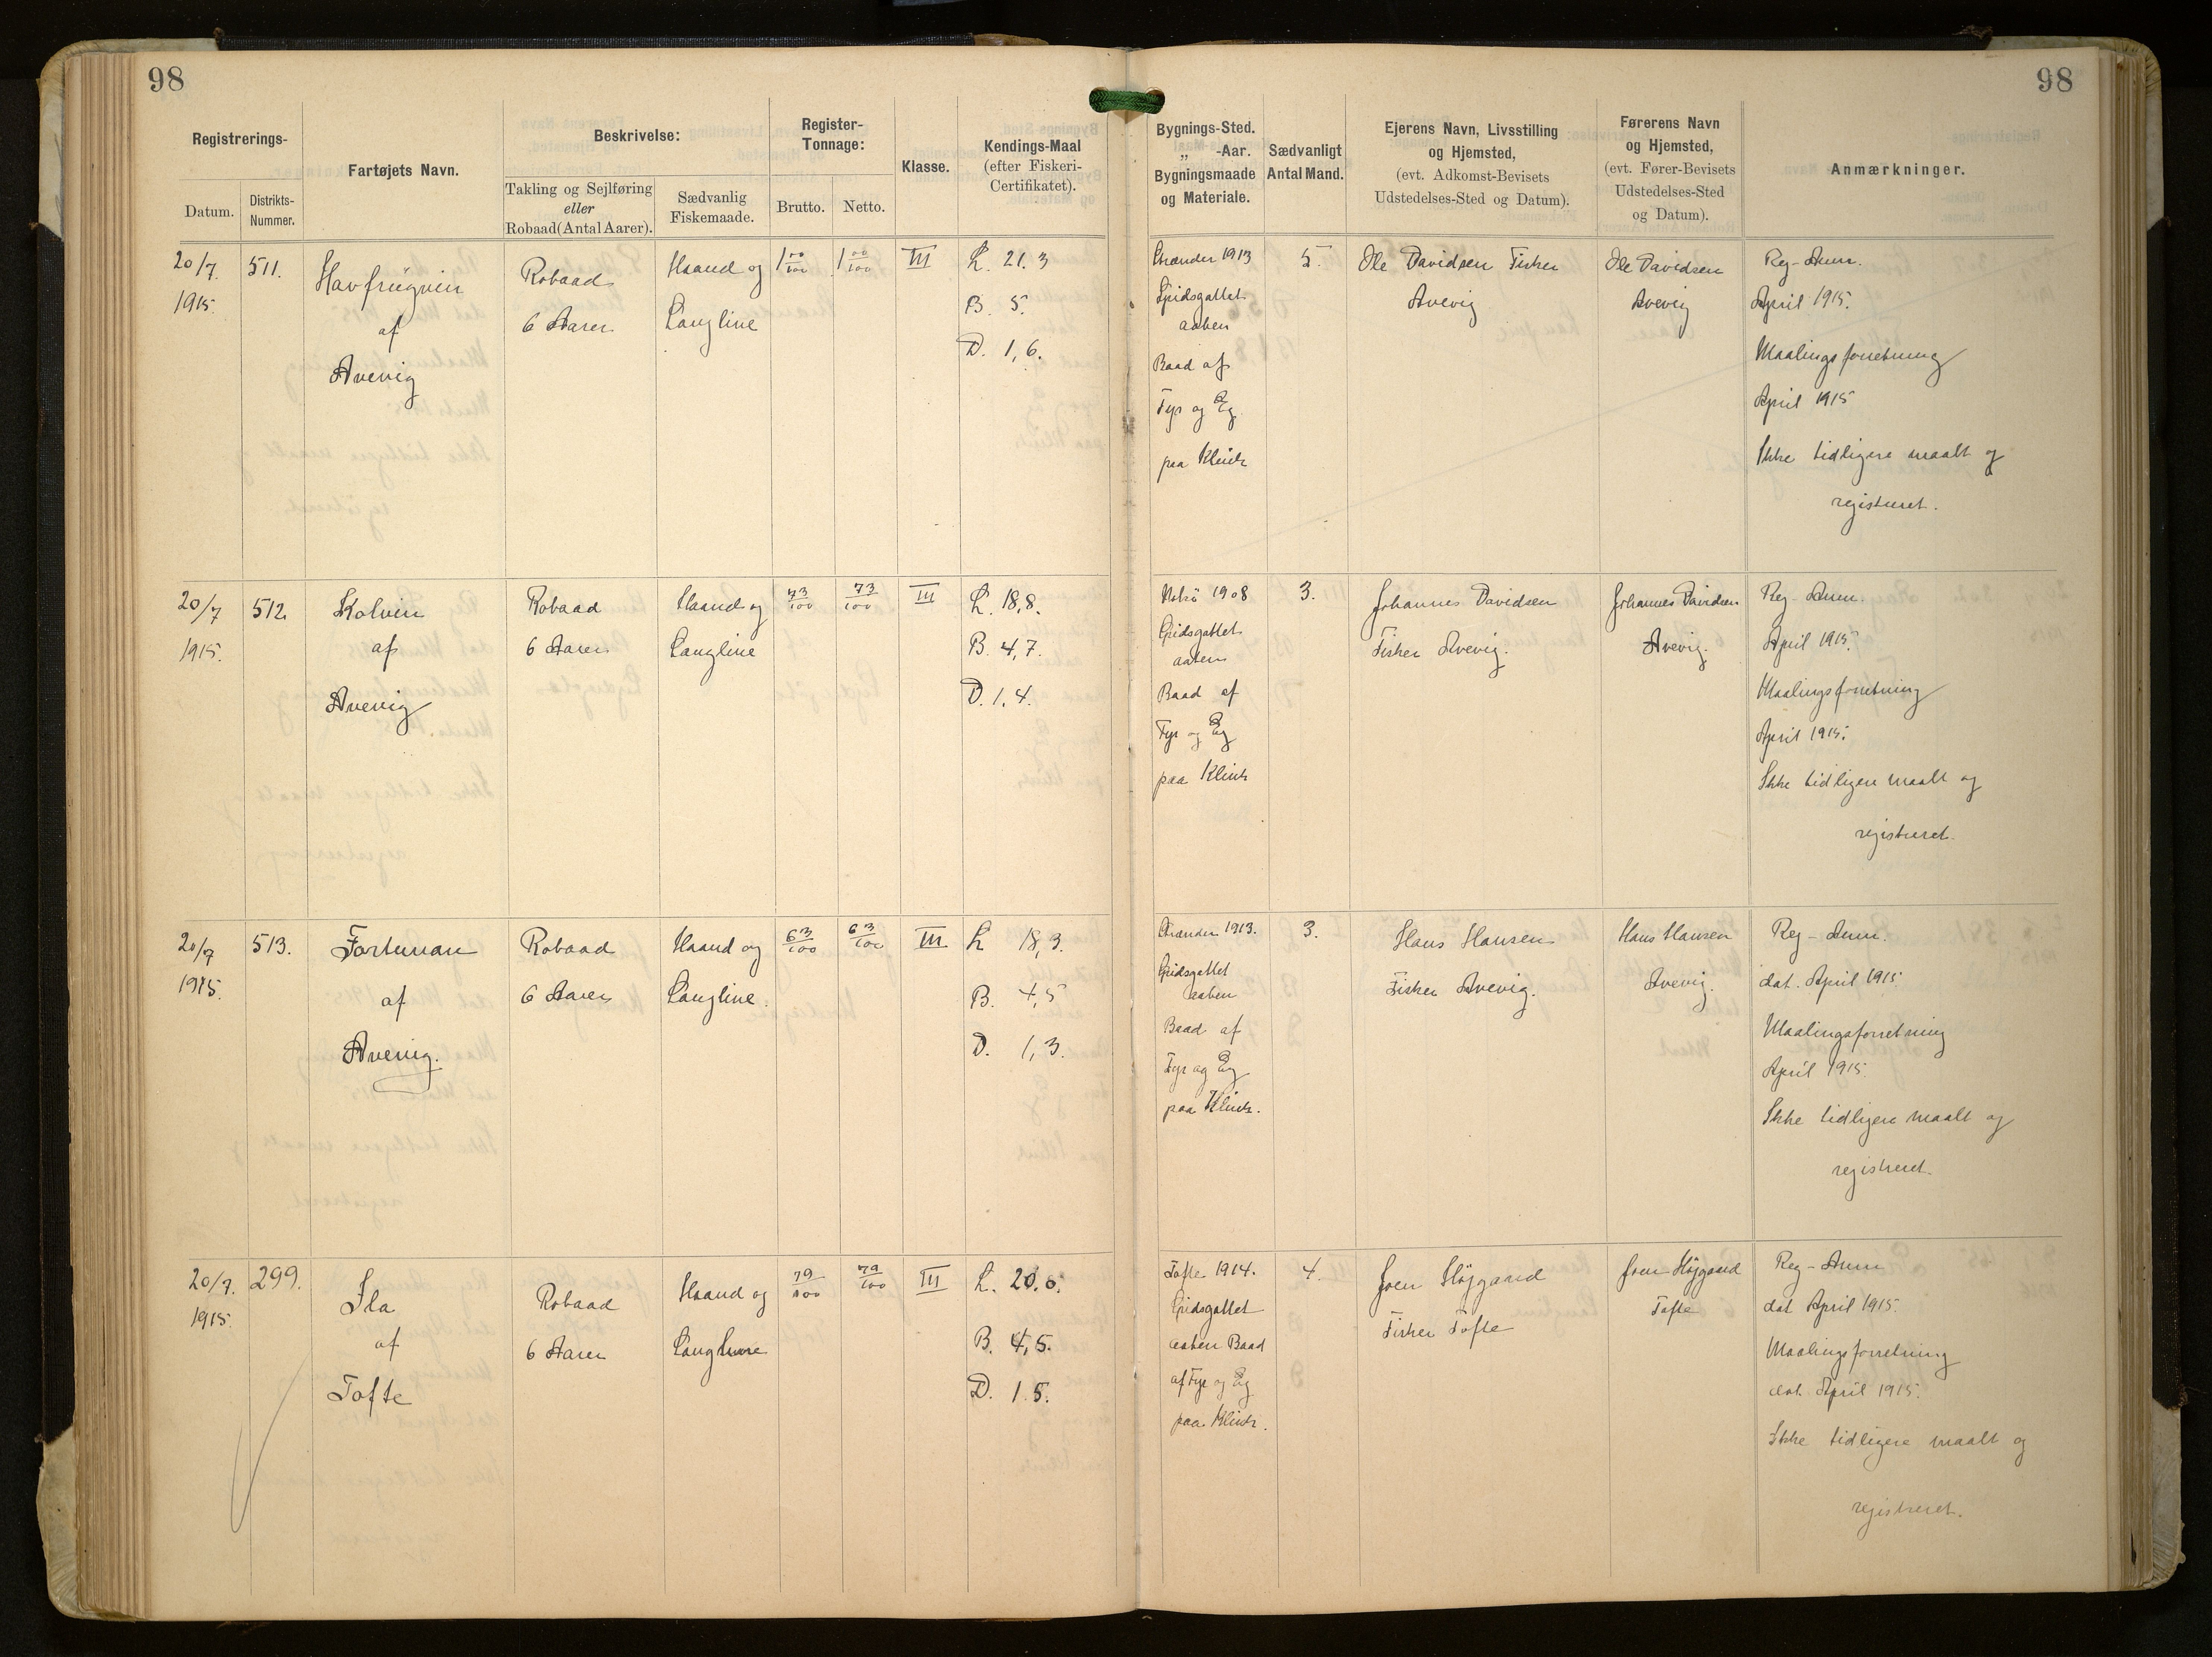 98
98
Registrerings-
Datum.
Distrikts-
Nummer.
Fartøjets Navn.
Beskrivelse:
Takling og Sejlføring
eller
Robaad (Antal Aarer).
Sædvanlig
Fiskemaade.
Register-
Tonnage:
Brutto.
Netto.
Klasse.
Kendings-Maal
(efter Fiskeri-
Certifikatet).
Bygnings-Sted.
„ -Aar.
Bygningsmaade
og Materiale.
Sædvanligt
Antal Mand.
Ejerens Navn, Livsstilling
og Hjemsted,
(evt. Adkomst-Bevisets
Udstedelses-Sted og Datum).
Førerens Navn
og Hjemsted,
(evt. Fører-Bevisets
Udstedelses-Sted
og Datum).
Anmærkninger.
20/7.
1915.
511.
Havfrügvin
af
Avevig
Robaad
6 Aarer
Haand og
Langline
1 00/100
1 00/100
III
L. 21.3
B. 5.
D. 1,6.
1913
Spidsgattet
aaben
Baad af
Fyr og Eg
paa Klink
5.
Ole Davidsen Fisker
Avevig
Ole Davidsen
Avevig
Reg-Anm.
April 1915.
Maalingsforretning
April 1915
Ikke tidligere maalt og
registreret.
20/7
1915.
512.
Kolvin
af
Avevig
Robaad
6 Aarer
Haand og
Langline
73/100
73/100
III
L. 18,8.
B. 4,7.
D. 1,4.
1908
Spidsgattet
aaben
Baad af
Fyr og Eg
paa Klink
3.
Johannes Davidsen
Fisker Avevig.
Johannes Davidsen
Avevig.
Reg-Anm.
April 1915.
Maalingsforretning
April 1915.
Ikke tidligere maalt og
registreret.
20/7
1915.
513.
Fortunan
af
Avevig.
Robaad
6 Aarer
Haand og
Langline.
63/100
63/100
III.
L 18,3.
B. 4,5
D. 1,3.
1913.
Spidsgattet
aaben
Baad af
Fyr og Eg
paa Klink.
3.
Hans Hansen
Fisker Avevig.
Hans Hansen
Avevig.
Reg-Anm.
dat. April 1915.
Maalingsforretning
April 1915.
Ikke tidligere maalt og
registreret.
20/7.
1915.
299.
Ila
af
Tofte
Robaad
6 Aarer
Haand og
Langline
79/100
79/100
III
L. 20.0.
B. 4,5.
D. 1.5.
Tofte 1914.
Spidsgattet
aaben Baad
af Fyr og Eg
paa Klink.
4.
Joen Højgaard
Fisker Tofte
Joen Højgaard
Tofte
Reg-Anm
dat April 1915.
Maalingsforretning
dat. April 1915.
Ikke tidligere maalt og
registreret.